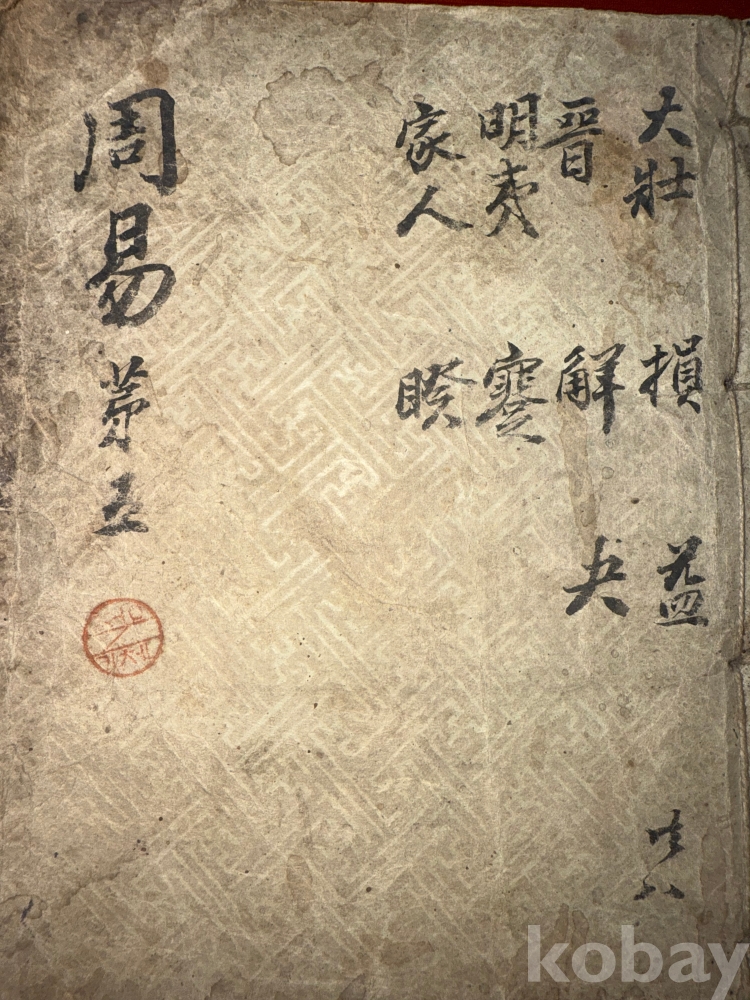 大壯 損 益 共八
晉 解 夬
明夷 蹇
家人 睽
周易 苐五
kobay